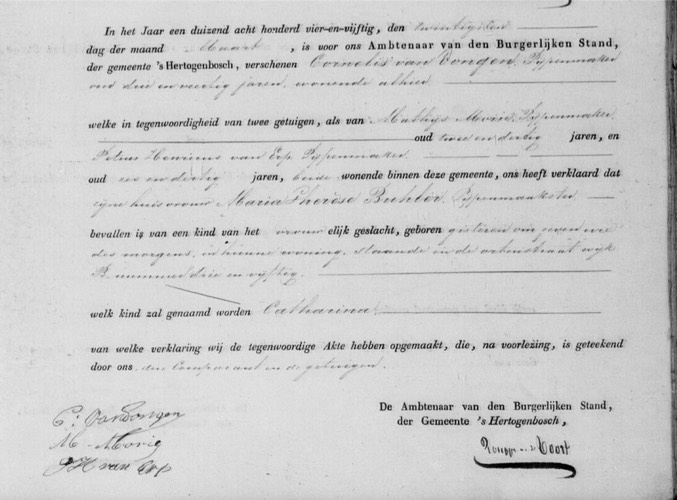 In het Jaar een duizend acht honderd vier-en-vijftig, den twintigsten
dag der maand Maart, is voor ons Ambtenaar van den Burgerlijken Stand,
der gemeente 's Hertogenbosch, verschenen Cornelis van Dongen, Pijpenmaker
oud drie en veertig jaren, wonende alhier
welke in tegenwoordigheid van twee getuigen, als van Mathijs Morie, Pijpenmaker
oud twee en dertig jaren, en
Petrus Henricus van Erp Pijpenmaker
oud zes en dertig jaren, beide wonende binnen deze gemeente, ons heeft verklaard dat
zijne huisvrouw Maria Therese Buhler, Pijpenmaakster
bevallen is van een kind van het vrouwelijk geslacht, geboren gisteren om zeven ure
des morgens, in hunne woning, staande in de straat wijk
B. nummer drie en vijftig.
welk kind zal genaamd worden Catharina
van welke verklaring wij de tegenwoordige Akte hebben opgemaakt, die, na voorlezing, is geteekend
door ons den Comparant en de getuigen.
C: van Dongen
M. Morie
P H van Erp
De Ambtenaar van den Burgerlijken Stand,
der Gemeente 's Hertogenbosch,